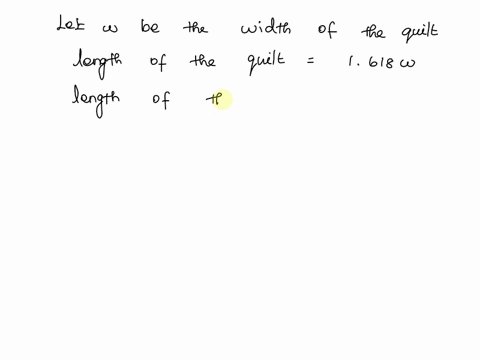 Let w be the width of the quilt
length of the quilt = 1.618 w
length of t